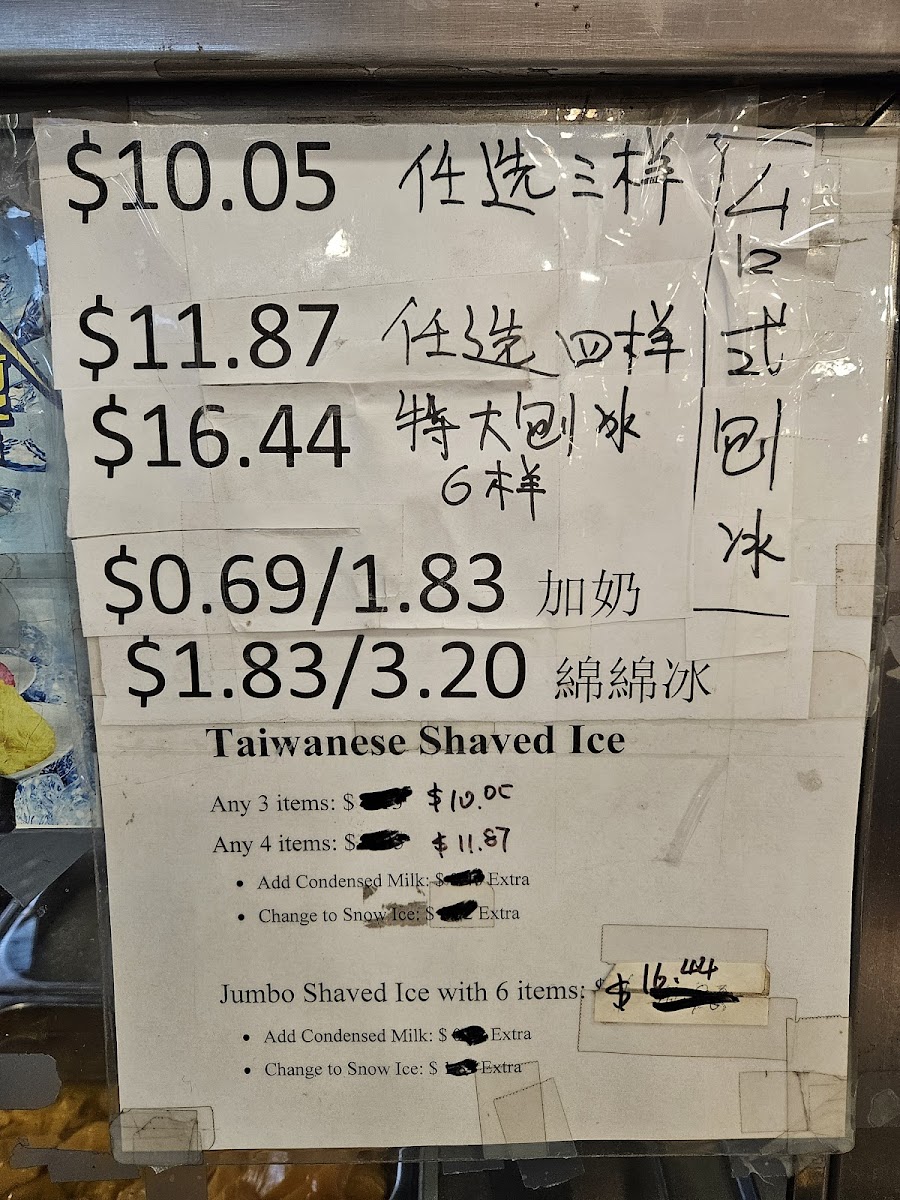 $10.05 任选三样
$11.87 任选四样
$16.44 特大刨冰
6样
$0.69/1.83 加奶
$1.83/3.20 綿綿冰
台式刨冰
Taiwanese Shaved Ice
Any 3 items: $ $10.05
Any 4 items: $ $11.87
• Add Condensed Milk: $ Extra
• Change to Snow Ice: $ Extra
Jumbo Shaved Ice with 6 items: $16.44
• Add Condensed Milk: $ Extra
• Change to Snow Ice: $ Extra